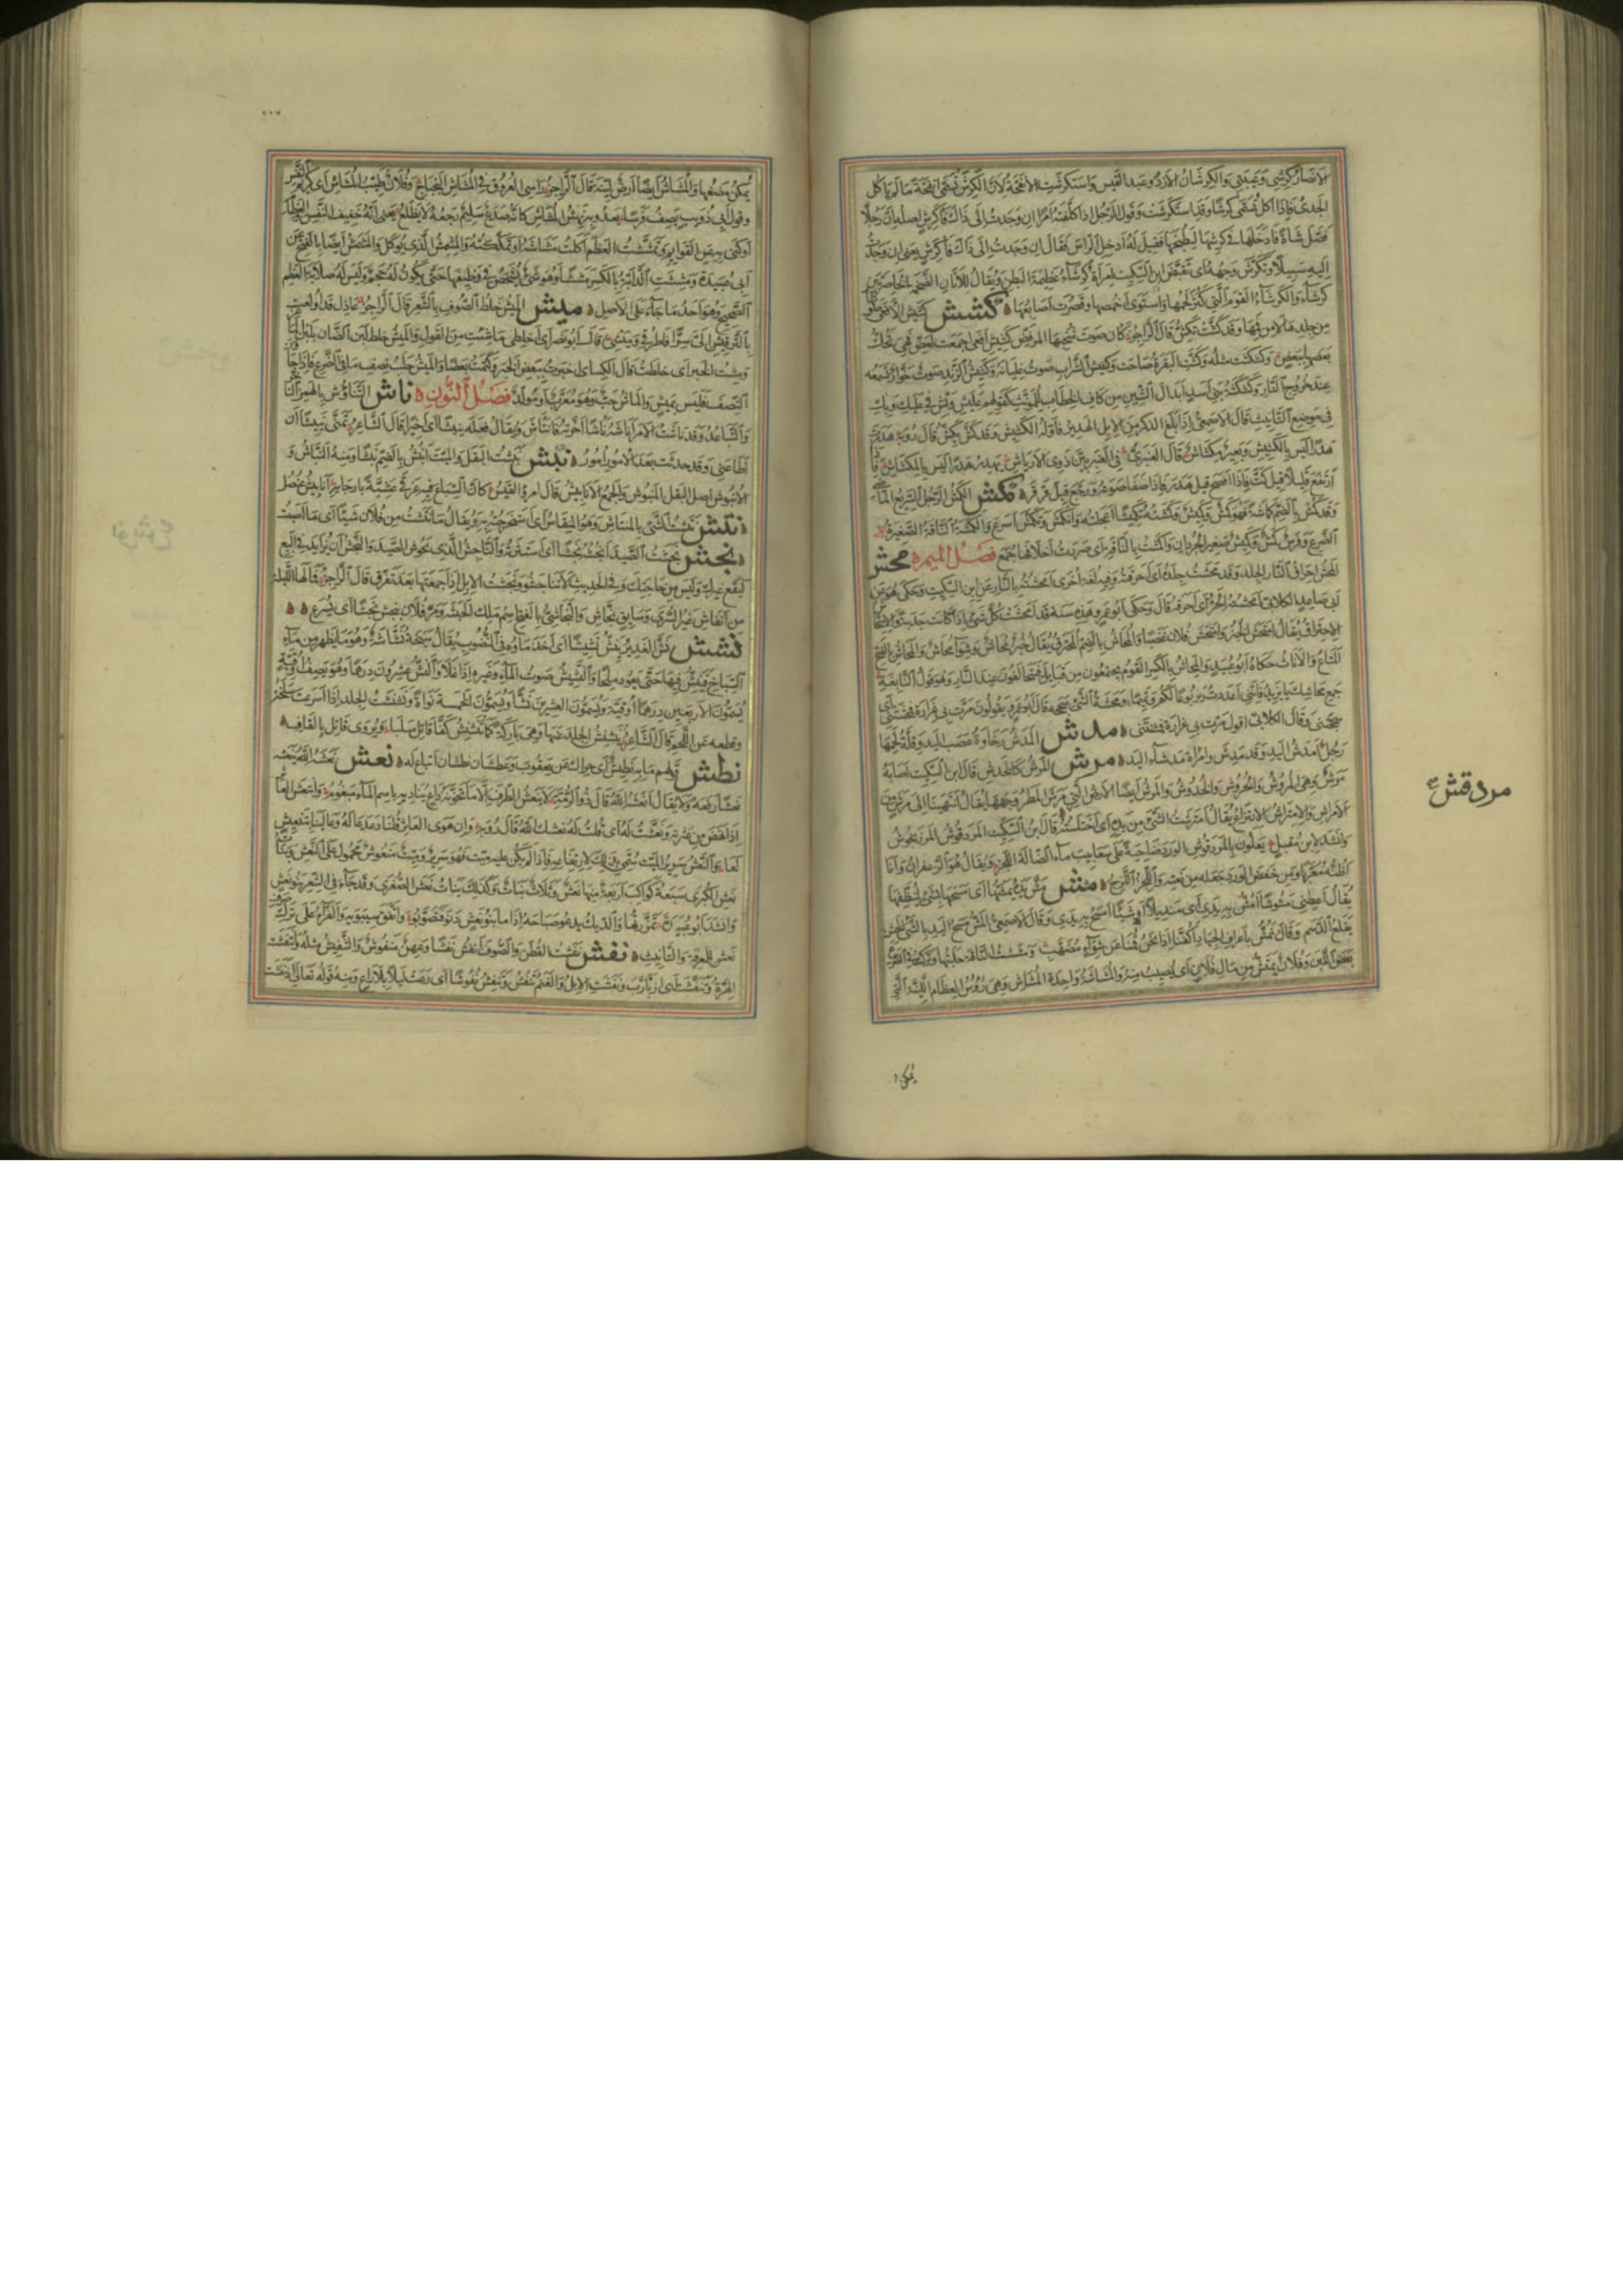 الانصار كرشي وعيبتي والكرشان الازد وعبد القيس واستكرشت الانفحة لان الكرش تسمى انفحة ما لم ياكل
الجدى فاذا اكل تسمى كرشا وقد استكرشت وقول الرجل اذا كلفته امرا ان وجدت الى ذلك فا كرش اصله ان رجلا
فصل شاة فادخلها في كرشها ليطبخها فقيل له ادخل الراس فقال ان وجدت الى ذلك فا كرش يعنى ان وجدت
اليه سبيلا وتكرش وجهه اى تقبض ابن السكيت امراة كرشاء عظيمة البطن ويقال للاتان الضخمة الخاصرتين
كرشاء والكرشاء القدم التى كثر لحمها واستوى اخمصها وقصرت اصابعها كشش كشيش الافعى صوتها
من جلدها لا من فمها وقد كشت تكش قال الراجز كان صوت شخبها المرفض كشيش افعى اجمعت لعض فهى تحك
بعضها ببعض وكشكشت مثله وكشت البقرة صاحت وكشيش الشراب صوت غليانه وكشيش الزند صوت خوار تسمعه
عند خروج النار وكشكشة بنى اسد ابدال الشين من كاف الخطاب للمونث كقولهم عليش وبش في عليك وبك
في موضع التانيث قال الاصمعى اذا بلغ الذكر من الابل الهدير فاوله الكشيش وقد كش يكش قال روبة هدرت
هدرا ليس بالكشيش وبعير مكشاش قال العنبرى في العنبريين ذوى الارياش يهدر هدرا ليس بالمكشاش فاذا
ارتفع قليلا قيل كت فاذا افصح قيل هدر فاذا صفا صوته ورجع قيل قرقر كمش الكمش الرجل السريع الماضى
وقد كمش بالضم كماشة فهو كمش وكميش وكمشته تكميشا اعجلته وانكمش وتكمش اسرع والكمشة الناقة الصغيرة
الضرع وفرس كمش وكميش صغير الجردان واكمشت بالناقة اى صررت اخلافها جمع فصل الميم محش
المحش احراق النار الجلد وقد محشت جلده اى احرقته وفيه لغة اخرى امحشته بالنار عن ابن السكيت وحكى هو عن
ابى صاعد الكلابى امحشه الحر اى احرقه قال وحكى ابو عمرو هذه سنة قد امحشت كل شىء اذا كانت جدبة والامتحاش
الاحتراق يقال امتحش الخبز وامتحش فلان غضبا والمحاش بالضم المحترق يقال خبز محاش وشواء محاش والمحاش بالفتح
المتاع والاثاث حكاه ابو عبيد والمحاش بالكسر القوم يجتمعون من قبايل فيتحالفون عند النار وهو قول النابغة
جمع محاشك يا يزيد فاننى اعددت يربوعا لكم وتميما ومحشة الشىء سحجه قال ابو عمرو يقولون مرت بى غرارة فمحشتنى اى
سحجتنى وقال الكلابى اقول مرت بى غرارة فمشنتنى مدش المدش رخاوة عصب اليد وقلة لحمها
رجل امدش اليد وقد مدش وامراة مدشاء اليد مرش المرش كالخدش قال ابن السكيت اصابه
مرش وهى المروش والخروش والخدوش والمرش ايضا الارض التى مرش المطر وجهها يقال انتهينا الى مرش من
الامراش والامتراش الانتزاع يقال امترشت الشىء من يده اى اختلسته قال ابن السكيت المردقوش المرزنجوش
وانشد لابن مقبل يعلون بالمردقوش الورد ضاحية على سعابيب ماء الضالة اللجز ويقال هو الزعفران وانا
اظنه معربا ومن خفض الورد جعله من نعته واللجز اللزج مشش مش يده يمشها اى مسحها بشىء لينظفها
يقال اعطنى مشوشا امش به يدى اى منديلا او شيئا امسح به يدى وقال الاصمعى المش مسح اليد بالشىء الخشن
يقلع الدسم وقال نمش باعراف الجياد اكفنا اذا نحن قمنا عن شواء مضهب ومششت الناقة حلبتها وتركت في الضرع
بعض اللبن وفلان يمش من مال فلان اى يصيب منه والمشاشة واحدة المشاش وهى رؤس العظام اللينة التى
يمكن
مردقش
يمكن مضغها والمشاش ايضا ارض لينة قال الراجز راسى العروق في المشاش البجباج وفلان طيب المشاش اى كريم النفس
وقول ابى ذويب يصف فرسا يعدو به نهش المشاش كانه صدع سليم رجعه لا يظلع يعنى انه خفيف النفس العظام
او كنى به عن القوايم وتمششت العظم اكلت مشاشه او تمككته والمشمش الذى يوكل والمشمش ايضا بالفتح عن
ابى عبيدة ومششت الدابة بالكسر مششا وهو شىء يشخص في وظيفها حتى يكون له حجم وليس له صلابة العظم
الصحيح وهو احد ما جاء على الاصل ميش الميش خلط الصوف بالشعر قال الراجز عاذل قد اولعت
بالترقيش الى سرا فاطرقى وميشى قال ابو نصر اى اخلطى ما شئت من القول والميش خلط لبن الضان بلبن الماعز
ومشت الخبر اى خلطت قال الكسائى اخبرت ببعض الخبر وكتمت بعضا والميش حلب نصف ما في الضرع فاذا جاوز
النصف فليس بميش والماش حب وهو معرب او مولد فصل النون ناش التناوش بالهمز التاخر
والتباعد وقد نأشت الامر انأشه نأشا اخرته فانتأش ويقال فعله نئيشا اى اخيرا قال الشاعر تمنى نئيشا ان
اطاعنى وقد حدثت بعد الامور امور نبش نبشت البقل والميت انبش بالضم نبشا ومنه النباش و
الانبوش اصل البقل المنبوش والجمع الانابيش قال امرؤ القيس كان السباع فيه غرقى عشية بارجايه انابيش عنصل
نتش نتشت الشىء بالمنتاش وهو المنقاش اى استخرجته به ويقال ما نتشت من فلان شيئا اى ما اصبت
نجش نجشت الصيد انجشه نجشا اى استثرته والناجش الذى يحوش الصيد والنجش ان تزايد في البيع
ليقع غيرك وليس من حاجتك وفي الحديث لا تناجشوا ونجشت الابل اذا جمعتها بعد تفرق قال الراجز فما لها الليلة
من انفاش غير السرى وسايق نجاش والنجاشى بالفتح اسم ملك الحبشة ومر فلان ينجش نجشا اى يسرع
نشش نش الغدير ينش نشيشا اى اخذ ماؤه في النضوب يقال سبخة نشاشة وهو ما يظهر من ماء
السباخ فينش فيها حتى يعود ملحا والنشيش صوت الماء وغيره اذا غلا والنش عشرون درهما وهو نصف اوقية
يسمون الاربعين درهما اوقية ويسمون العشرين نشا ويسمون الخمسة نواة ونشنشت الجلد اذا اسرعت سلخه
وقطعه عن اللحم قال الشاعر ينشنش الجلد عنها وهى باركة كما تنشنش كفا قاتل سلبا ويروى فاتل بالفاء
نطش قولهم ما به نطيش اى حراك عن يعقوب وعطشان نطشان اتباع له نعش نعشه الله ينعشه
نعشا رفعه ولا يقال انعشه الله قال ذو الرمة لا ينعش الطرف الا ما تخونه داع يناديه باسم الماء مبغوم وانتعش العاثر
اذا نهض من عثرته ونعشت له اى قلت له نعشك الله قال روبة وان هوى العاثر قلنا دعدعا له وعالينا بتنعيش
لعا والنعش سرير الميت سمى بذلك لارتفاعه فاذا لم يكن عليه ميت فهو سرير وميت منعوش محمول على النعش وبنات
نعش الكبرى سبعة كواكب اربعة منها نعش وثلاث بنات وكذلك بنات نعش الصغرى وقد جاء في الشعر بنو نعش
وانشد ابو عبيد تمززتها والديك يدعو صباحه اذا ما بنو نعش دنوا فتصوبوا واتفق سيبويه والفراء على ترك صرف
نعش للمعرفة والتانيث نفش نفشت القطن والصوف انفش نفشا وعهن منفوش والتنفيش مثله وانتفشت
الهرة وتنفشت اى ازبارت ونفشت الابل والغنم تنفش وتنفش نفوشا اى رعت ليلا بلا راع ومنه قوله تعالى اذ نفشت